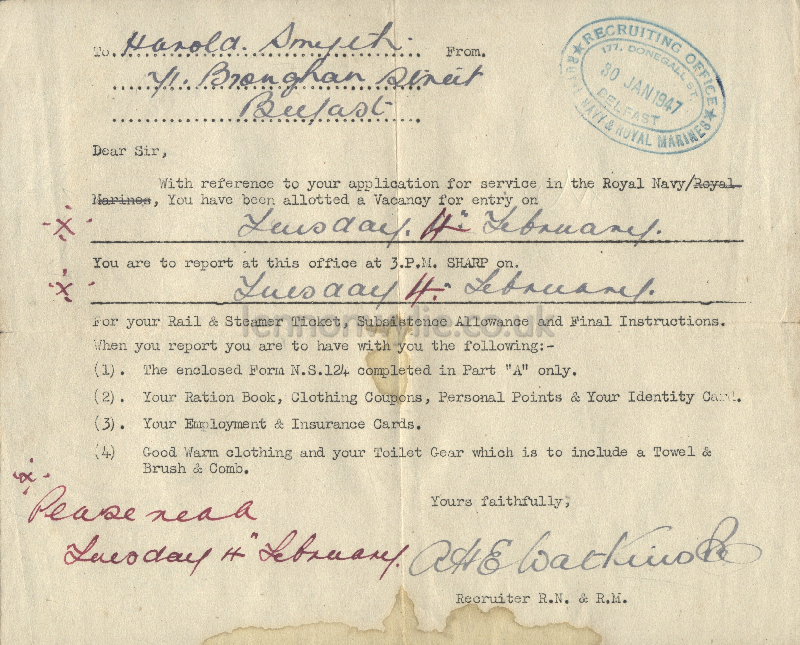 To Harold. Smyth. From.
71. Broughan Street
Belfast
★ RECRUITING OFFICE ★
177, DONEGALL ST.
30 JAN 1947
BELFAST
NAVY & ROYAL MARINES
Dear Sir,
With reference to your application for service in the Royal Navy/Royal
Marines, You have been allotted a Vacancy for entry on
X Tuesday. 4" February.
You are to report at this office at 3.P.M. SHARP on.
X Tuesday 4" February.
lennonwylie.co.uk
For your Rail & Steamer Ticket, Subsistence Allowance and Final Instructions.
When you report you are to have with you the following:-
(1). The enclosed Form N.S.124 completed in Part "A" only.
(2). Your Ration Book, Clothing Coupons, Personal Points & Your Identity Card.
(3). Your Employment & Insurance Cards.
(4) Good Warm clothing and your Toilet Gear which is to include a Towel &
Brush & Comb.
X
Yours faithfully,
Please
Tuesday 4" February.
Recruiter R.N. & R.M.